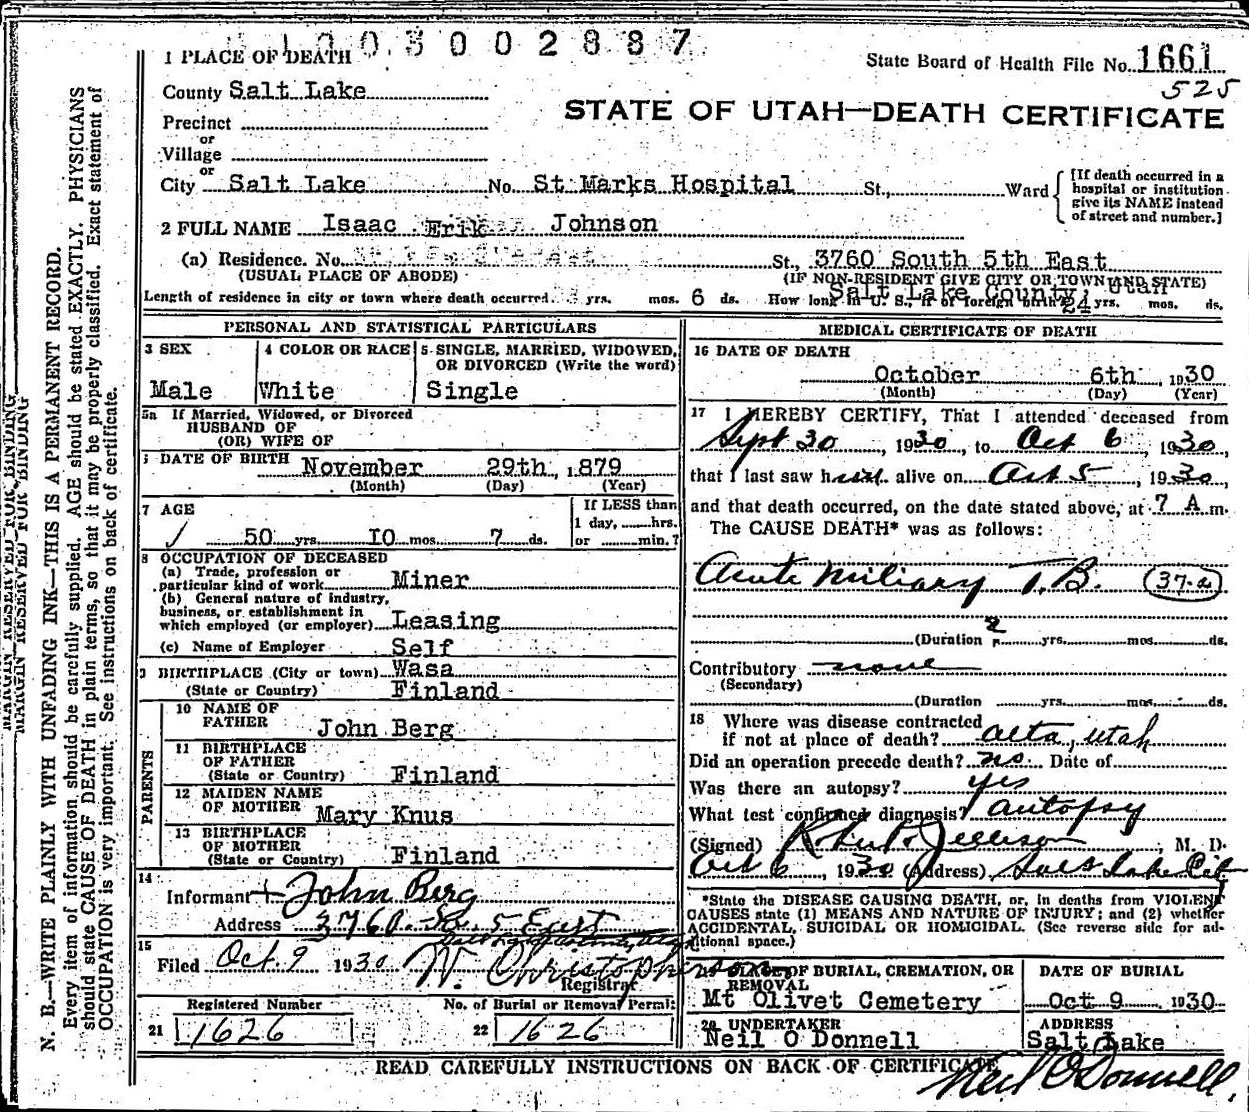 1003002887
1 PLACE OF DEATH
State Board of Health File No. 1661
525
County Salt Lake
STATE OF UTAH—DEATH CERTIFICATE
Precinct
or
Village
or
City Salt Lake No. St Marks Hospital St., Ward
[If death occurred in a hospital or institution give its NAME instead of street and number.]
2 FULL NAME Isaac Erik Johnson
(a) Residence. No. St., 3760 South 5th East
(USUAL PLACE OF ABODE) (IF NON-RESIDENT GIVE CITY OR TOWN AND STATE)
Salt Lake County, Utah
Length of residence in city or town where death occurred. yrs. mos. 6 ds. How long in U. S., if of foreign birth? 24 yrs. mos. ds.
PERSONAL AND STATISTICAL PARTICULARS
3 SEX
Male
4 COLOR OR RACE
White
5 SINGLE, MARRIED, WIDOWED, OR DIVORCED (Write the word)
Single
5a If Married, Widowed, or Divorced
HUSBAND OF
(OR) WIFE OF
6 DATE OF BIRTH November 29th, 1879
(Month) (Day) (Year)
7 AGE
50 yrs. 10 mos. 7 ds.
If LESS than
1 day, hrs.
or min.?
8 OCCUPATION OF DECEASED
(a) Trade, profession or
particular kind of work Miner
(b) General nature of industry,
business, or establishment in
which employed (or employer) Leasing
(c) Name of Employer Self
9 BIRTHPLACE (City or town) Wasa
(State or Country) Finland
PARENTS
10 NAME OF
FATHER John Berg
11 BIRTHPLACE
OF FATHER
(State or Country) Finland
12 MAIDEN NAME
OF MOTHER Mary Knus
13 BIRTHPLACE
OF MOTHER
(State or Country) Finland
14
Informant John Berg
Address 3760 So. 5 East
15
Filed Oct. 9 1930 W. Christopherson
Registrar
Registered Number
21 1626
No. of Burial or Removal Permit
22 1626
MEDICAL CERTIFICATE OF DEATH
16 DATE OF DEATH
October 6th, 1930
(Month) (Day) (Year)
17 I HEREBY CERTIFY, That I attended deceased from
Sept 30, 1930, to Oct 6, 1930,
that I last saw him alive on Oct 5, 1930,
and that death occurred, on the date stated above, at 7 A m.
The CAUSE DEATH* was as follows:
Acute Miliary T.B. 37-a
(Duration ? yrs. mos. ds.
Contributory none
(Secondary)
(Duration yrs. mos. ds.
18 Where was disease contracted
if not at place of death? Alta, Utah
Did an operation precede death? no. Date of
Was there an autopsy? yes
What test confirmed diagnosis? autopsy
(Signed) Jellison, M. D.
Oct 6, 1930 (Address) Salt Lake City
*State the DISEASE CAUSING DEATH, or, in deaths from VIOLENT
CAUSES state (1) MEANS AND NATURE OF INJURY; and (2) whether
ACCIDENTAL, SUICIDAL OR HOMICIDAL. (See reverse side for additional space.)
19 PLACE OF BURIAL, CREMATION, OR
REMOVAL
Mt Olivet Cemetery
DATE OF BURIAL
Oct 9 1930
20 UNDERTAKER
Neil O Donnell
ADDRESS
Salt Lake
READ CAREFULLY INSTRUCTIONS ON BACK OF CERTIFICATE
Neil O'Donnell.
MARGIN RESERVED FOR BINDING
N. B.—WRITE PLAINLY WITH UNFADING INK—THIS IS A PERMANENT RECORD.
Every item of information should be carefully supplied. AGE should be stated EXACTLY. PHYSICIANS
should state CAUSE OF DEATH in plain terms, so that it may be properly classified. Exact statement of
OCCUPATION is very important. See instructions on back of certificate.